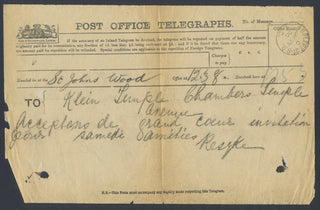 POST OFFICE TELEGRAPHS.
No. of Message
If the accuracy of an Inland Telegram be doubted, the telegram will be repeated on payment of half the amount
originally paid for its transmission, any fraction of 1d. less than ½d. being reckoned as ½d.; and if it be found that there was any inaccuracy,
the amount paid for repetition will be refunded. Special conditions are applicable to the repetition of Foreign Telegrams.
Office Stamp
Charges to pay
Handed in at the St Johns Wood Office at 12.38 Received here at
TO Klein Temple Chambers Temple
Avenue
Acceptons de grand coeur invitation
pour samedi amities
Reszke
N.B.—This Form must accompany any inquiry made respecting this Telegram.